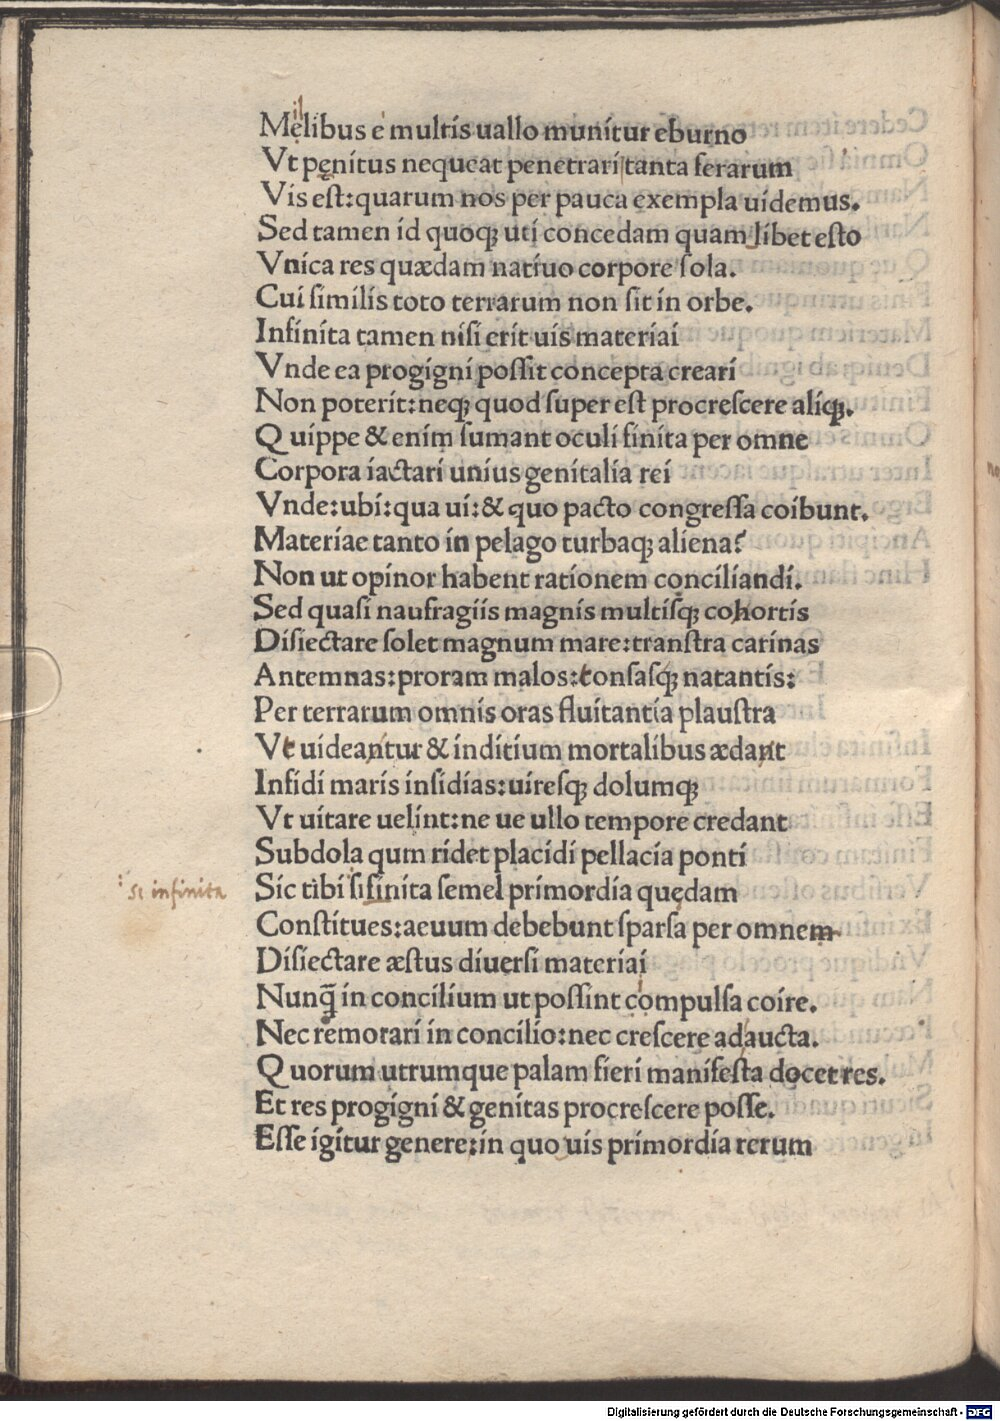 Melibus e multis uallo munitur eburno
il
Vt penitus nequeat penetrari tanta ferarum
Vis est:quarum nos per pauca exempla uidemus.
Sed tamen id quoqꝫ uti concedam quam libet esto
Vnica res quædam natiuo corpore sola.
Cui similis toto terrarum non sit in orbe.
Infinita tamen nisi erit uis materiai
Vnde ea progigni possit concepta creari
Non poterit:neqꝫ quod super est procrescere aliqꝫ.
Quippe & enim sumant oculi finita per omne
Corpora iactari unius genitalia rei
Vnde:ubi:qua ui:& quo pacto congressa coibunt.
Materiae tanto in pelago turbaqꝫ aliena?
Non ut opinor habent rationem conciliandi.
Sed quasi naufragiis magnis multisqꝫ cohortis
Disiectare solet magnum mare:transtra carinas
Antemnas:proram malos:tonsasqꝫ natantis:
Per terrarum omnis oras fluitantia plaustra
Vt uideantur & inditium mortalibus ædant
Infidi maris insidias:uiresqꝫ dolumqꝫ
Vt uitare uelint:ne ue ullo tempore credant
Subdola qum ridet placidi pellacia ponti
si infinita
Sic tibi sifinita semel primordia quędam
Constitues:aeuum debebunt sparsa per omnem
Disiectare æstus diuersi materiai
Nunq̄ in concilium ut possint compulsa coire.
Nec remorari in concilio:nec crescere adaucta.
Quorum utrumque palam fieri manifesta docet res.
Et res progigni & genitas procrescere posse.
Esse igitur genere:in quo uis primordia rerum
Digitalisierung gefördert durch die Deutsche Forschungsgemeinschaft - DFG